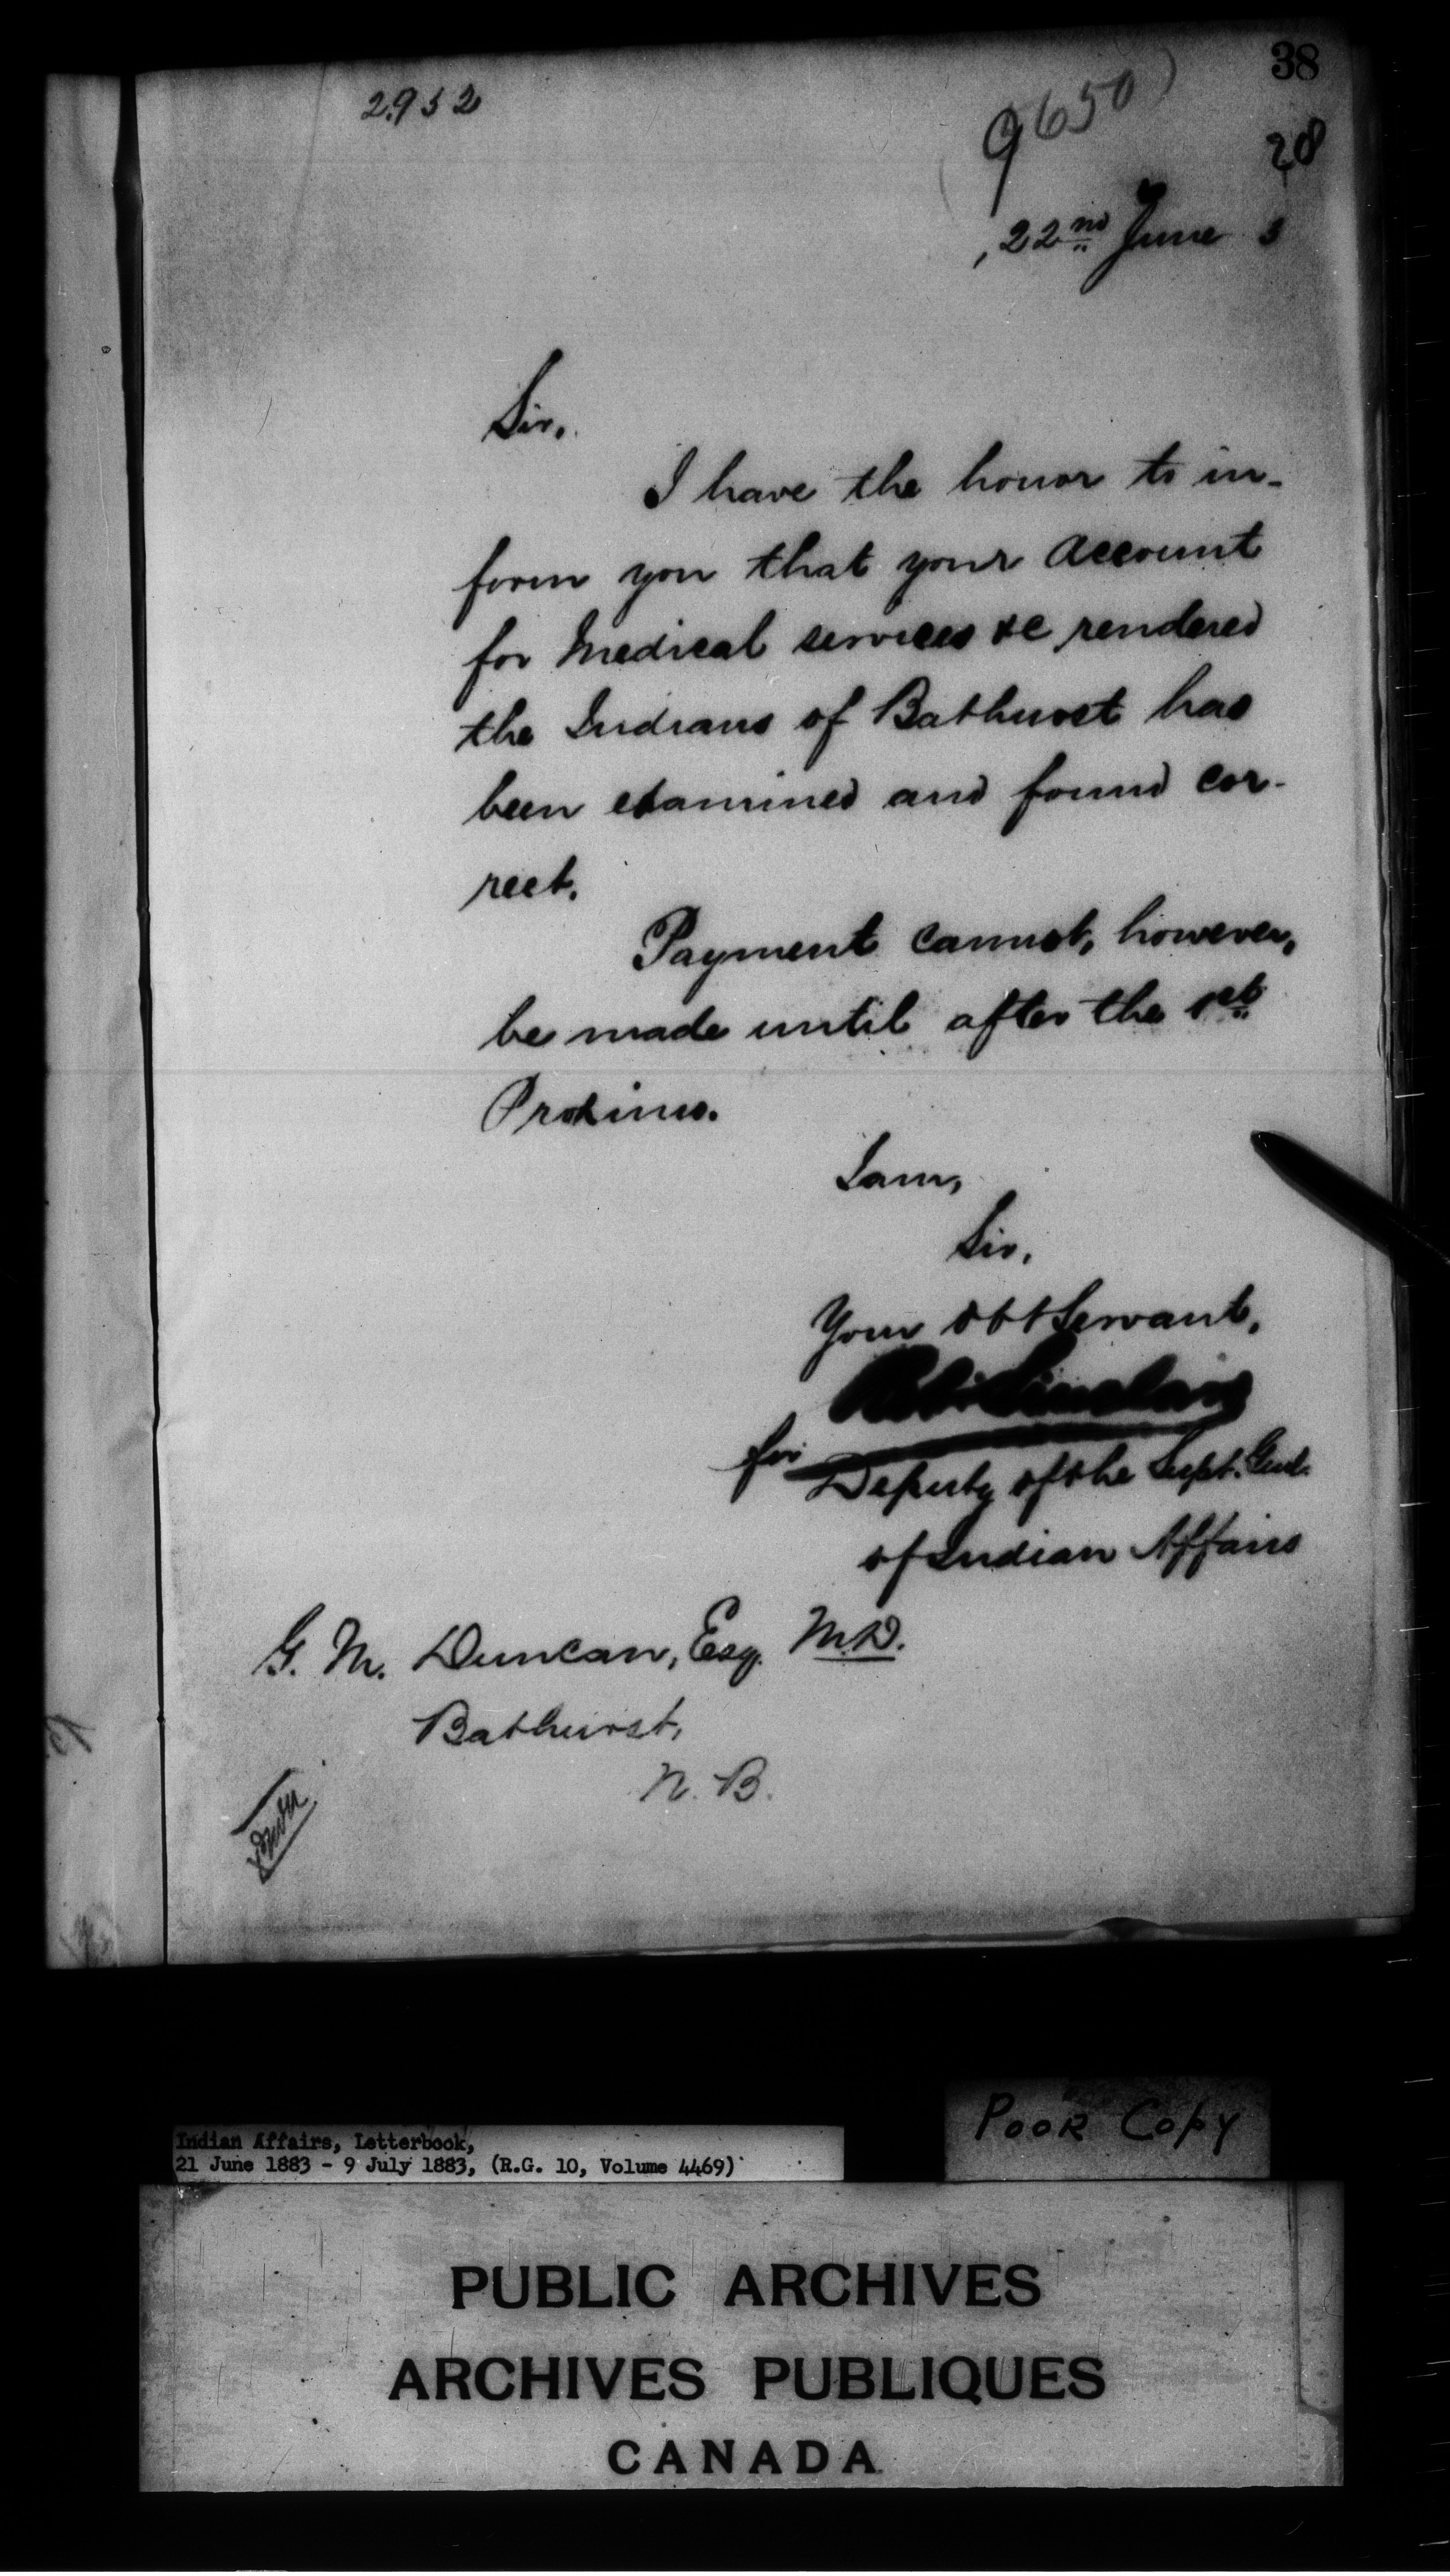 38
2952
9650
28
22nd June 3
Sir,
I have the honor to in-
form you that your account
for Medical services &c rendered
the Indians of Bathurst has
been examined and found cor-
rect.
Payment cannot, however,
be made until after the 1st
Proximo.
I am,
Sir,
Your Obt Servant,
Robt Sinclair
for Deputy of the Supt. Genl.
of Indian Affairs
G. M. Duncan, Esq. M.D.
Bathurst,
N. B.
Indian Affairs, Letterbook,
21 June 1883 - 9 July 1883, (R.G. 10, Volume 4469)
Poor Copy
PUBLIC ARCHIVES
ARCHIVES PUBLIQUES
CANADA